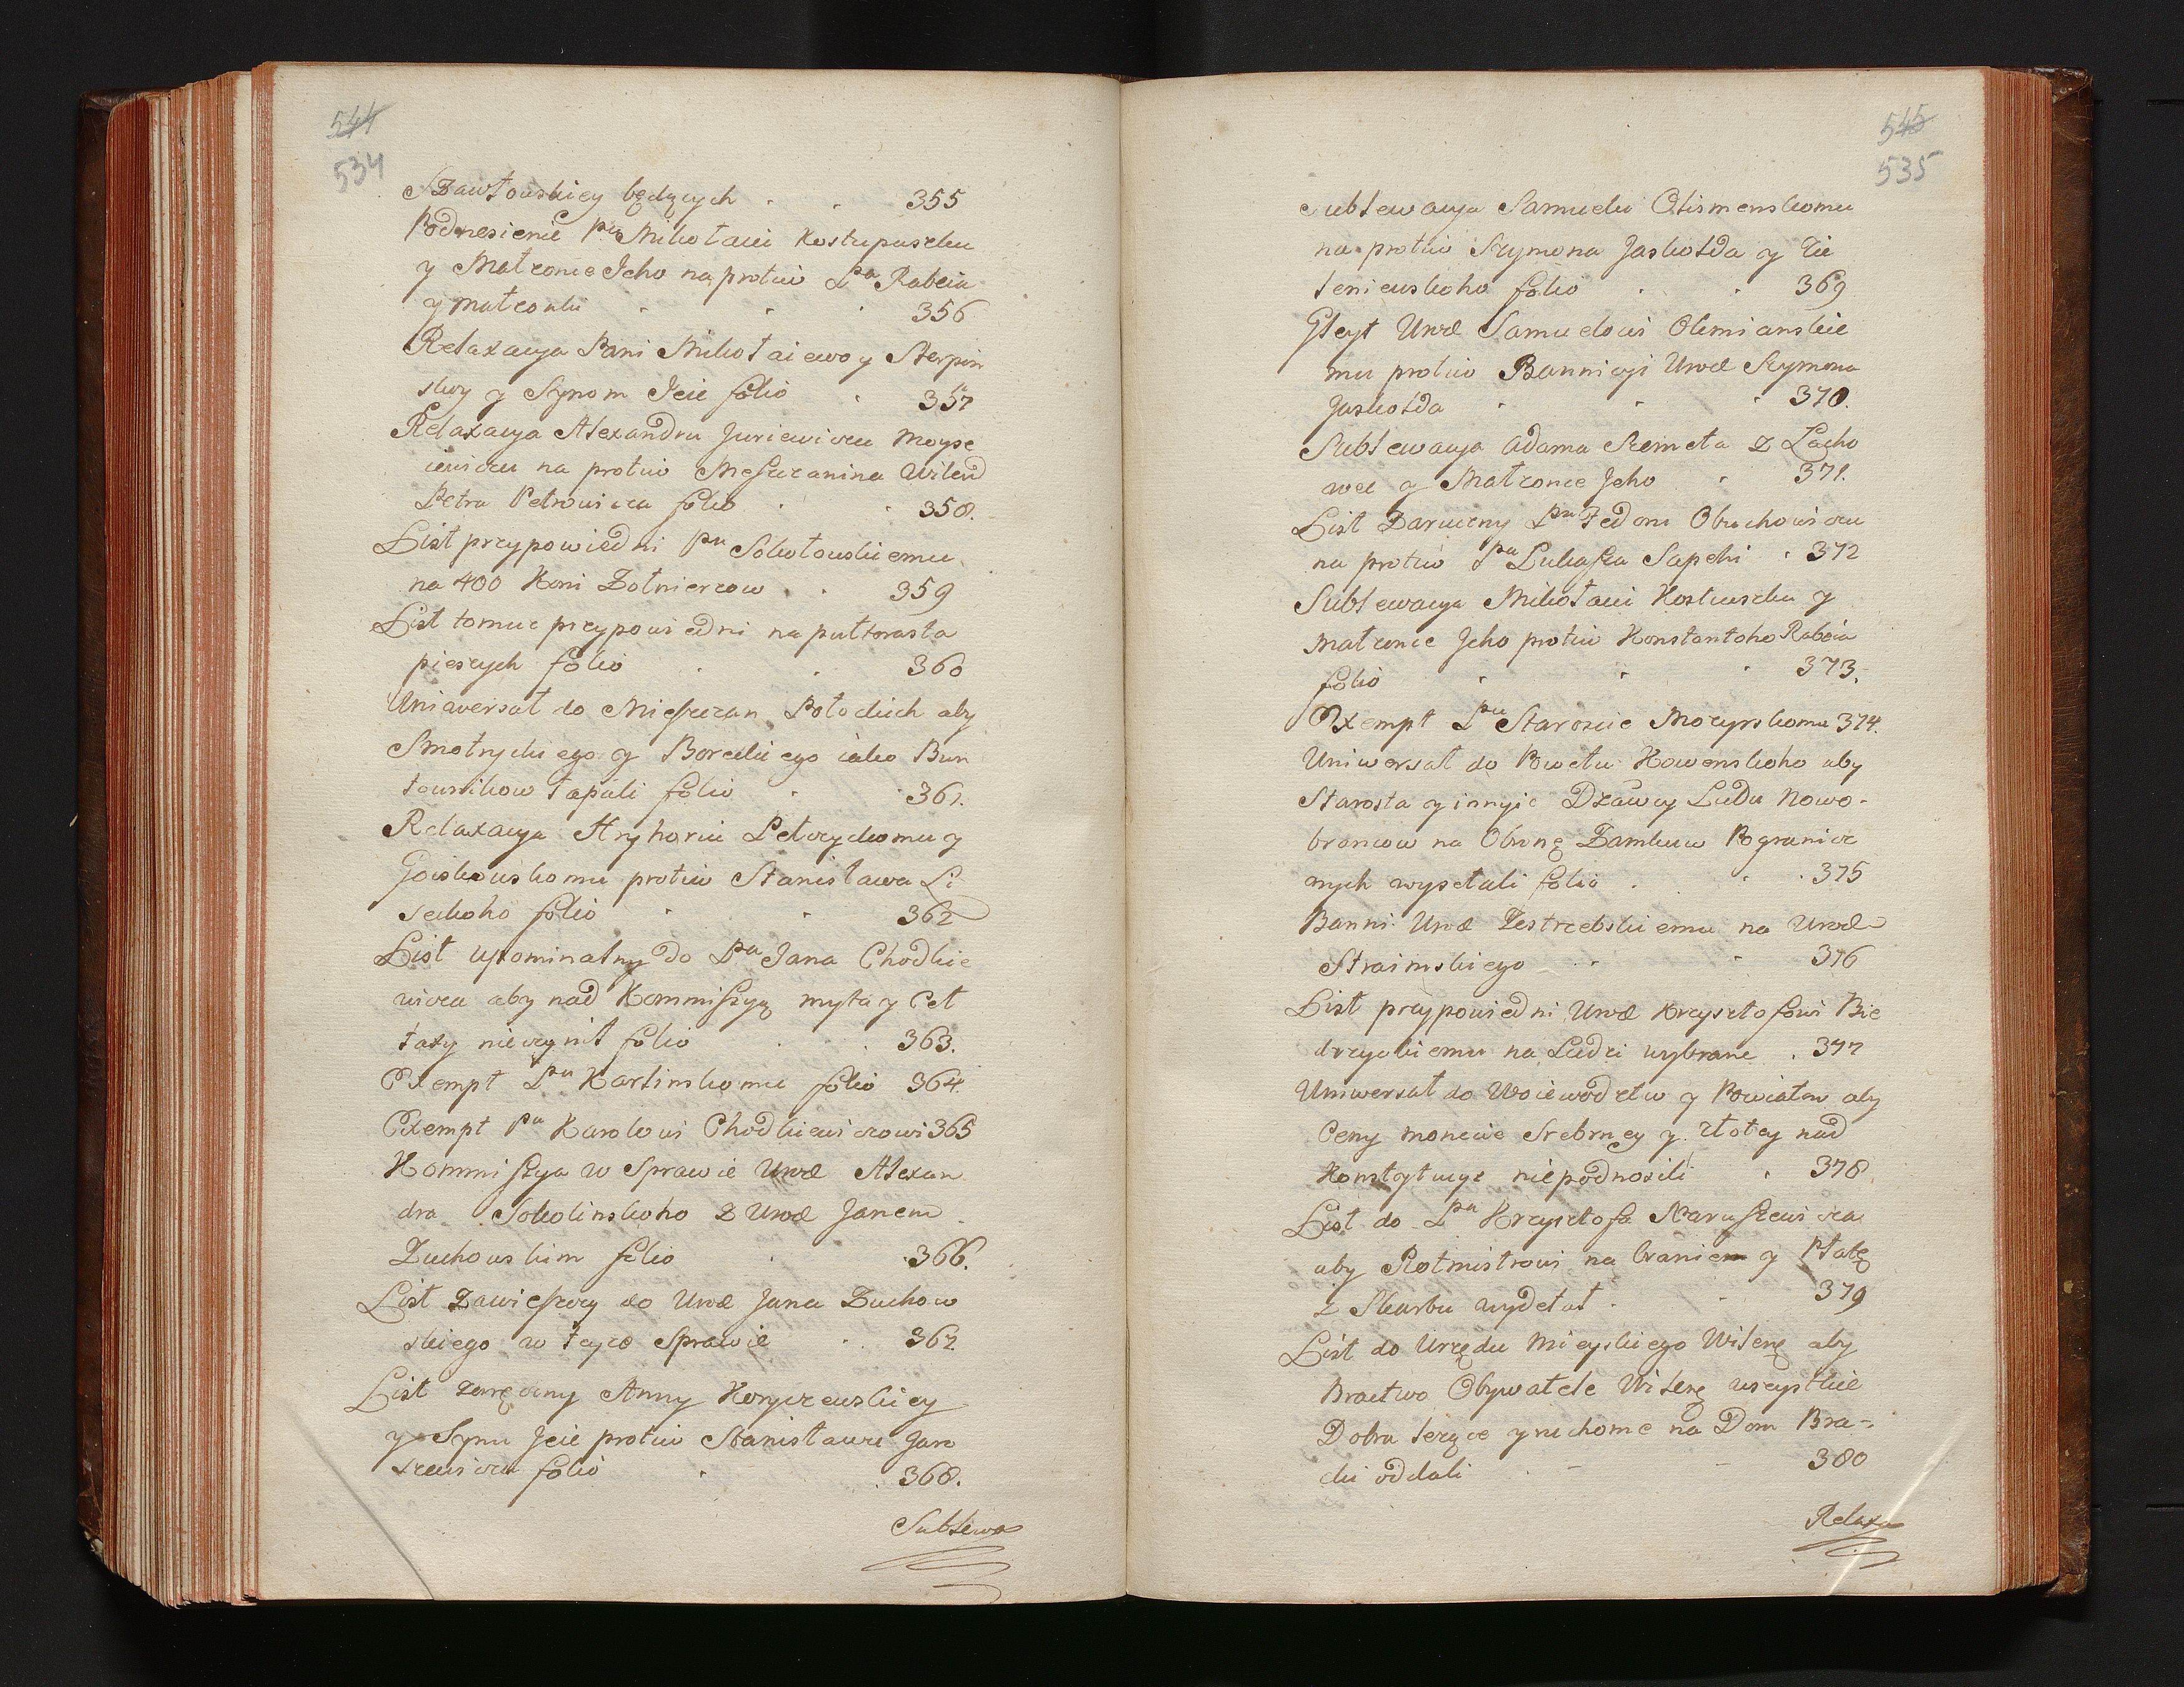 544
534
Szawłowskiey będących . . 355
Podnesienie Pu Mikołaiu Kostupuszku
y Małzonce Jeho na protiw Pa Rabeia
y małzonki . . . 356
Relaxacya Pani Mikołaiewoy Sterpin
skoy y Synom Jeie folio . 357
Relaxacya Alexandru Juriewiczu Moyse
iewiczu na protiw Meszczanina Wilen
Petra Petrowicza folio . . 358.
List przypowiedni Pu Sokołowskiemu
na 400 Koni Zołnierzow . . 359
List tomuz przypowiedni na pułtorasta
pieszych folio . . 360
Uniwersał do Mieszczan Połockich aby
Smotryckiego y Boreckiego iako Bun
townikow łapali folio . . 361.
Relaxacya Hryhoriu Petryckomu y
Goiskowskomu protiw Stanisława Li
seckoho folio . . 362
List upominalny do Pa Jana Chodkie
wicza aby nad Kommiszyą myta y Cel
taxy nieczynił folio . . 363.
Exempt Pu Karlinskomu folio 364.
Exempt Pu Karolowi Chodkiewiczowi 365
Kommiszya w Sprawie Urod Alexan
dra Sokolinskoho z Urod Janem
Zuchowskim folio . . 366.
List Zawieszczy do Urod Jana Zuchow
skiego w teyze Sprawie . . 367
List zaręczny Anny Koryczewskiey
y Synu Jeie protiw Stanisławu Jaro
szewiczu folio . . 368.
Sublewa
545
535
Sublewacya Samuelu Olismenskomu
na protiw Szymona Jaskołda y Tie
teniewskoho folio . . 369
Gleyt Urod Samuelowi Olimianskie
mu protiw Bannicyi Urod Szymona
Jaskołda . . . 370.
Sublewacya Adama Szemeta z Lacho
wec y Małzonce Jeho . 371.
List Zaruczny Pu Fedoru Obuchowiczu
na protiw Pa Lukasza Sapehi . 372
Sublewacya Mikołaiu Kostiuszku y
małzonce Jeho protiw Konstantoho Rabeia
folio . . . 373.
Exempt Pu Staroscie Mozyrskomu 374.
Uniwersał do Powetu Kowenskoho aby
Starosta y innyie Dzawcy Ludu Nowo-
brancow na Obronę Zamkuw Pogranicz
nych wysełali folio . . . 375
Banni. Urod Jestrzebskiemu na Urod
Straimskiego . . 376
List przypowiedni Urod Krzysztofowi Bie
drzyckiemu na Ludzi wybrane . 377
Uniwersał do Woiewodztw y Powiatow aby
Ceny monecie Srebrney y złotey nad
Konstytucye niepodnosili . 378
List do Pa Krzysztofa Naruszewicza
aby Rotmistrowi na branie y Płatę
z Skarbu wydełał . . 379
List do Urzędu Mieyskiego Wileng aby
Bractwo Obywatele Wileng wszystkie
Dobra leżące y ruchome na Dom Bra-
cki oddali . - - 380
Relaxa